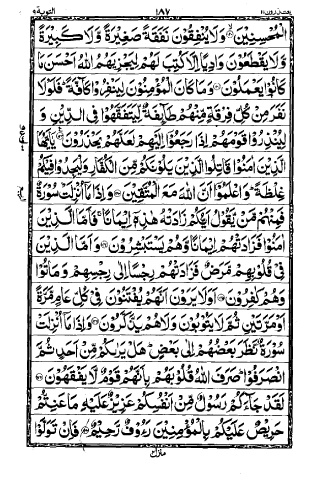 يعتذرون ١١ ١٨٧ التوبة ٩
الْمُحْسِنِيْنَ ۝ وَلَا يُنْفِقُوْنَ نَفَقَةً صَغِيْرَةً وَّلَا كَبِيْرَةً
وَّلَا يَقْطَعُوْنَ وَادِيًا اِلَّا كُتِبَ لَهُمْ لِيَجْزِيَهُمُ اللّٰهُ اَحْسَنَ مَا
كَانُوْا يَعْمَلُوْنَ ۝ وَمَا كَانَ الْمُؤْمِنُوْنَ لِيَنْفِرُوْا كَآفَّةً ؕ فَلَوْلَا
نَفَرَ مِنْ كُلِّ فِرْقَةٍ مِّنْهُمْ طَآئِفَةٌ لِّيَتَفَقَّهُوْا فِي الدِّيْنِ وَ
لِيُنْذِرُوْا قَوْمَهُمْ اِذَا رَجَعُوْۤا اِلَيْهِمْ لَعَلَّهُمْ يَحْذَرُوْنَ ۝ يٰۤاَيُّهَا
الَّذِيْنَ اٰمَنُوْا قَاتِلُوا الَّذِيْنَ يَلُوْنَكُمْ مِّنَ الْكُفَّارِ وَلْيَجِدُوْا فِيْكُمْ
غِلْظَةً ؕ وَاعْلَمُوْۤا اَنَّ اللّٰهَ مَعَ الْمُتَّقِيْنَ ۝ وَاِذَا مَاۤ اُنْزِلَتْ سُوْرَةٌ
فَمِنْهُمْ مَّنْ يَّقُوْلُ اَيُّكُمْ زَادَتْهُ هٰذِهٖۤ اِيْمَانًا ۚ فَاَمَّا الَّذِيْنَ
اٰمَنُوْا فَزَادَتْهُمْ اِيْمَانًا وَّهُمْ يَسْتَبْشِرُوْنَ ۝ وَاَمَّا الَّذِيْنَ
فِيْ قُلُوْبِهِمْ مَّرَضٌ فَزَادَتْهُمْ رِجْسًا اِلٰى رِجْسِهِمْ وَمَاتُوْا
وَهُمْ كٰفِرُوْنَ ۝ اَوَلَا يَرَوْنَ اَنَّهُمْ يُفْتَنُوْنَ فِيْ كُلِّ عَامٍ مَّرَّةً
اَوْ مَرَّتَيْنِ ثُمَّ لَا يَتُوْبُوْنَ وَلَا هُمْ يَذَّكَّرُوْنَ ۝ وَاِذَا مَاۤ اُنْزِلَتْ
سُوْرَةٌ نَّظَرَ بَعْضُهُمْ اِلٰى بَعْضٍ ؕ هَلْ يَرٰىكُمْ مِّنْ اَحَدٍ ثُمَّ
انْصَرَفُوْا ؕ صَرَفَ اللّٰهُ قُلُوْبَهُمْ بِاَنَّهُمْ قَوْمٌ لَّا يَفْقَهُوْنَ ۝
لَقَدْ جَآءَكُمْ رَسُوْلٌ مِّنْ اَنْفُسِكُمْ عَزِيْزٌ عَلَيْهِ مَا عَنِتُّمْ
حَرِيْصٌ عَلَيْكُمْ بِالْمُؤْمِنِيْنَ رَءُوْفٌ رَّحِيْمٌ ۝ فَاِنْ تَوَلَّوْا
منزل